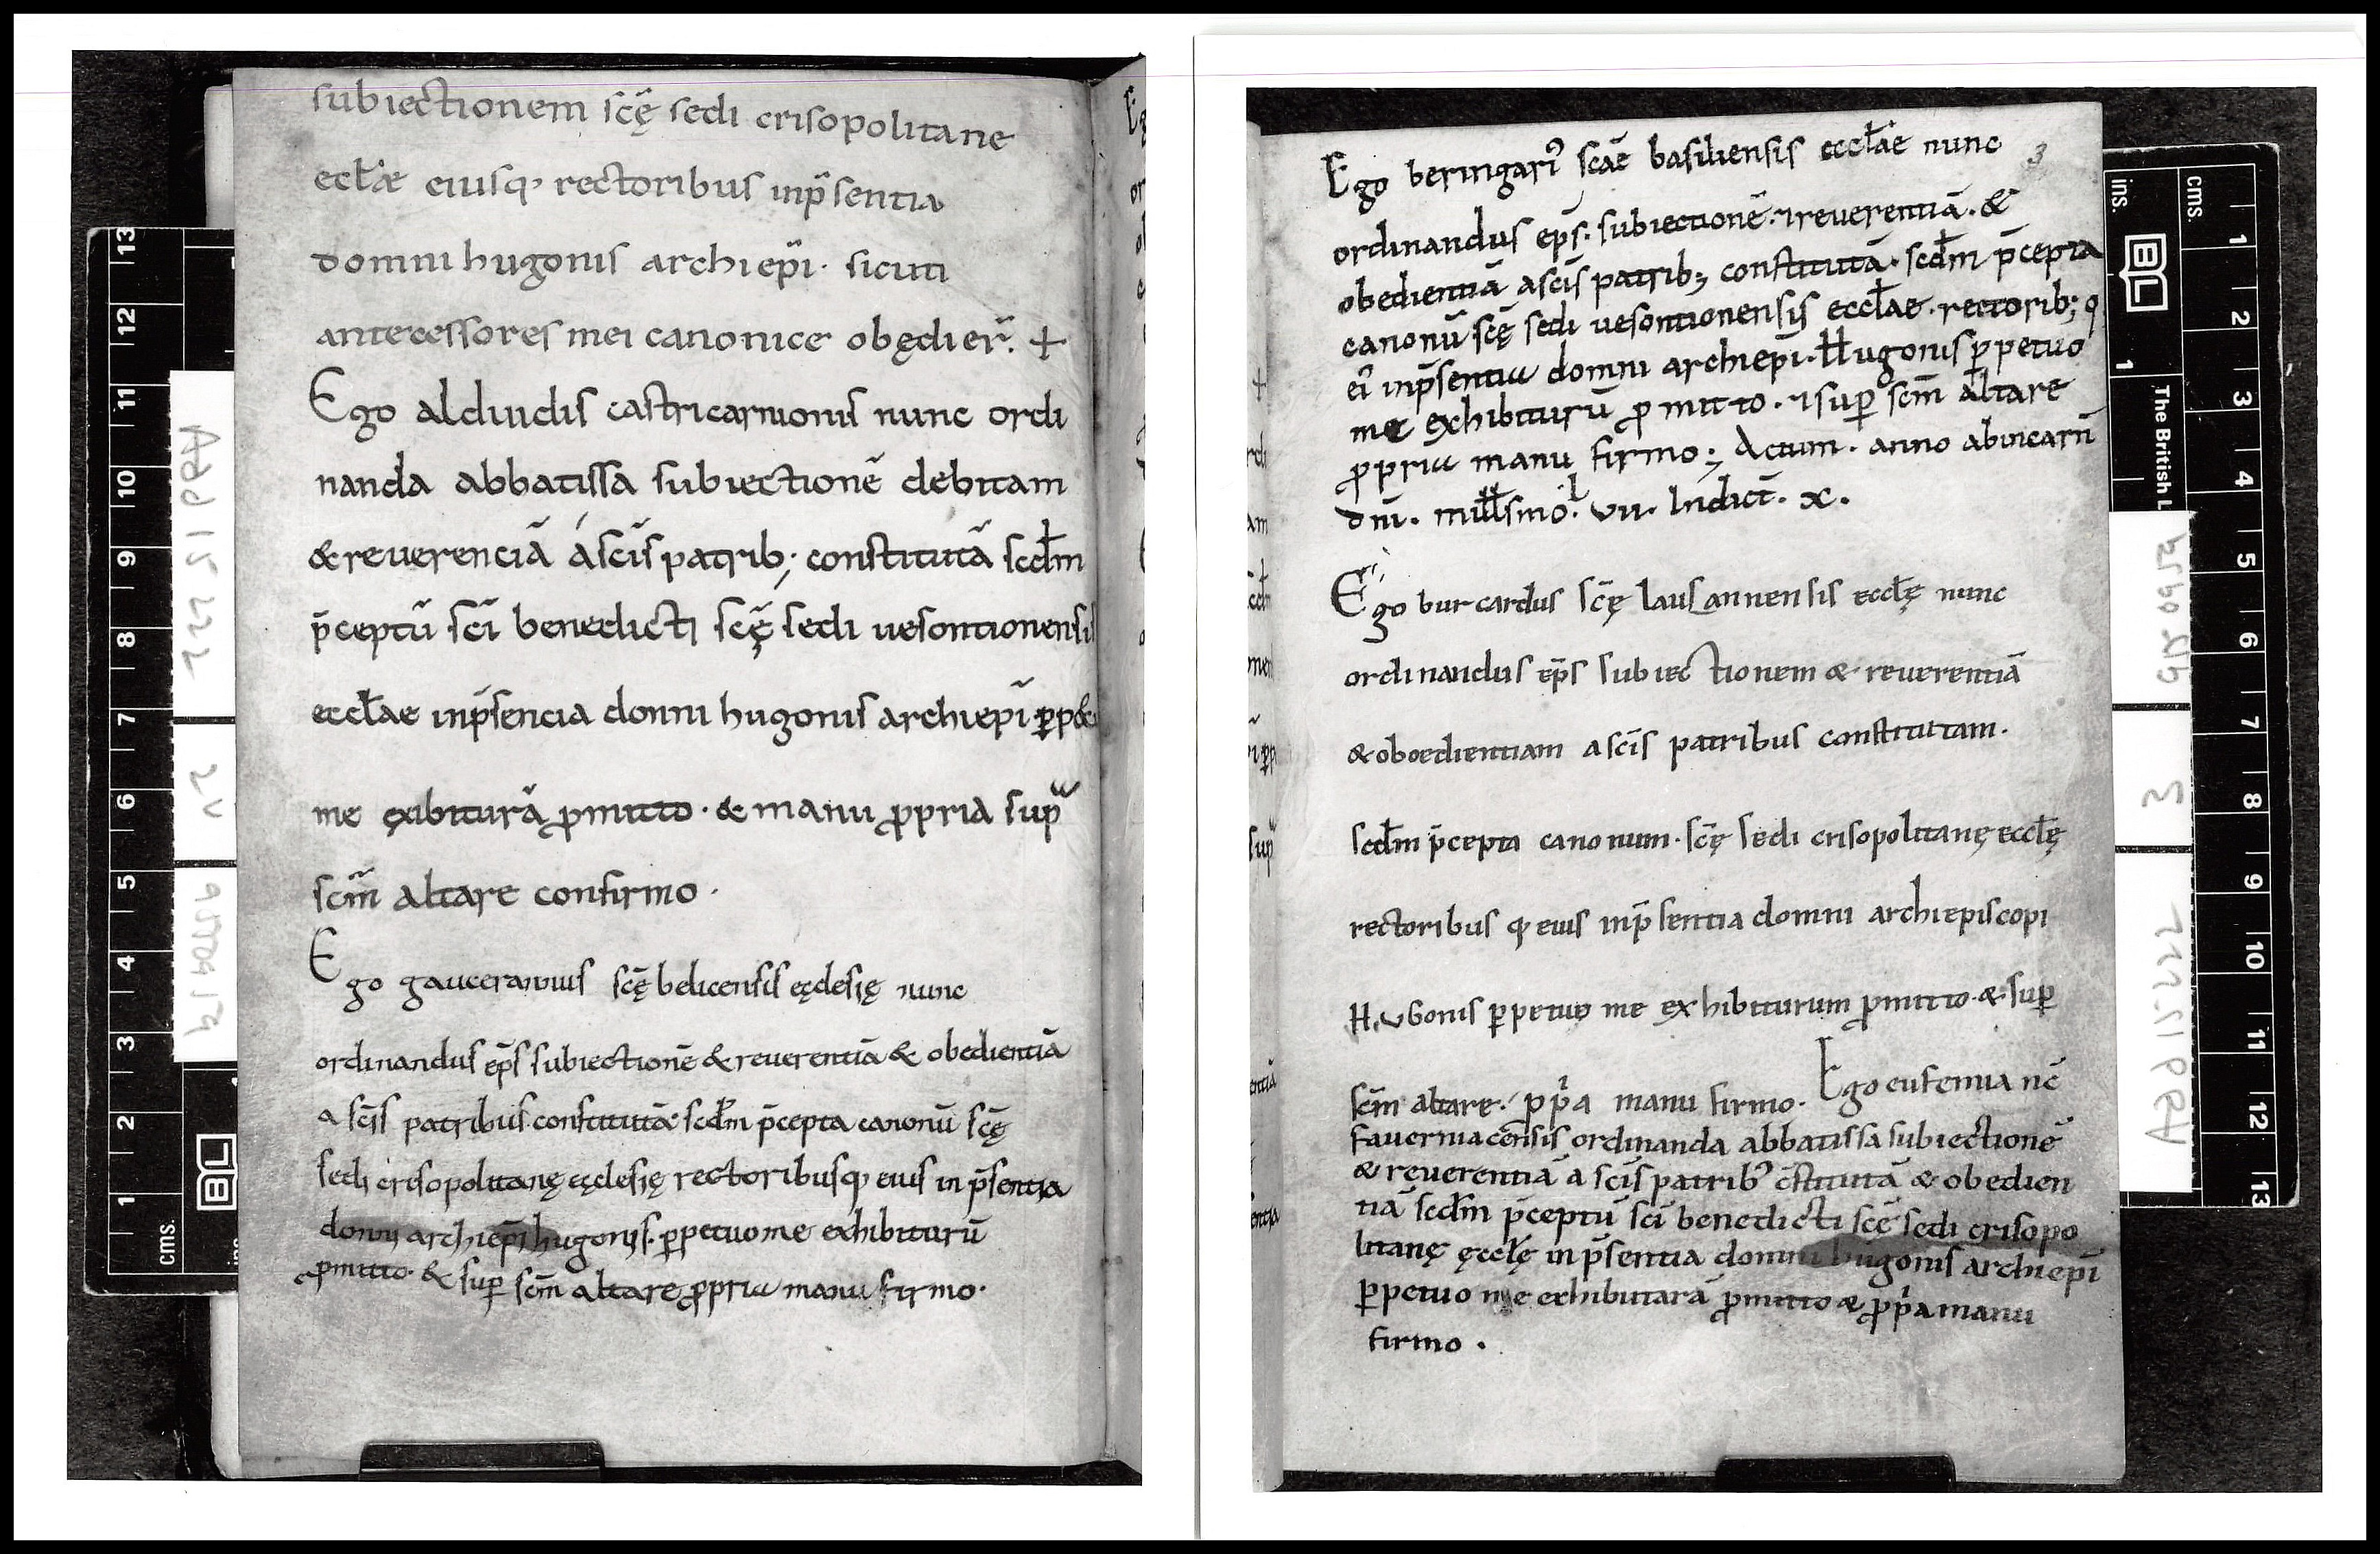 subiectionem scę̄ sedi crisopolitane
eccłæ eiusq; rectoribus inp̄sentia
domni hugonis archiep̄i· sicuti
antecessores mei canonice obędier̄. +
Ego alduidis castricarnonis nunc ordi
nanda abbatissa subiectionē debitam
& reuerenciā á sc̄is patrib; constitutā scd̄m
p̄ceptū sc̄i benedicti scę̄ sedi uesontionensis
eccłae inp̄sencia domni hugonis archiep̄i ꝑp&
me exibiturā ꝓmitto· & manu ꝓpria sup̄
sc̄m altare confirmo·
Ego gaucerannus scę̄ belicensis ęcclesię nunc
ordinandus ep̄s subiectionē & reuerentiā & obedientiā
a sc̄is patribus constitutā· scd̄m p̄cepta canonū scę̄
sedi crisopolitanę ęcclesię rectoribusq; eius in p̄sentia
domni archiep̄i hugonis· ꝑpetuo me exhibiturū
ꝓmitto· & suꝑ sc̄m altare ꝓpria manu firmo·
Ego beringari᾿ scāe basiliensis eccłae nunc
3
ordinandus ep̄s· subiectionē· ⁊ reuerentiā· &
obedientiā a sc̄is patrib; constitutā· scd̄m p̄cepta
canonū scę̄ sedi uesontionensis eccłae· rectorib; q
ei᾿ inp̄sentia domni archiep̄i· Hugonis ꝑpetuo
me exhibiturū ꝓmitto· ⁊ suꝑ sc̄m altare
ꝓpria manu firmo; Actum· anno abincarn̄
dn̄i· miłłsmo· L vii· Indict̄· x·
Ego burcardus sc̄ę lausannensis eccłę nunc
ordinandus ep̄s subiectionem & reuerentiā
& oboedientiam a sc̄is patribus constitutam·
scd̄m p̄cepta canonum· sc̄ę sedi crisopolitanę eccłę
rectoribus q; eius inp̄sentia domni archiepiscopi
Hugonis ꝑpetuo me exhibiturum ꝓmitto· & suꝑ
sc̄m altare· ꝓpⁱa manu firmo·
Ego eufemia nc̄
fauerniacensis ordinanda abbatissa subiectionē
& reuerentiā a sc̄is patrib᾿ c̄stitutā & obedien
tiā scd̄m p̄ceptū sc̄i benedicti scę̄ sedi crisopo
litanę ęccłę in p̄sentia domni hugonis archiep̄i
ꝑpetuo me exhibitarā ꝓmitto & ꝓpⁱa manu
firmo·
Add 15222
2v
Add 15222
3
cms.
ins.
BL
The British L
13
12
11
10
9
8
7
6
5
4
3
2
1
cms.
BL
1
2
3
4
5
6
7
8
9
10
11
12
13